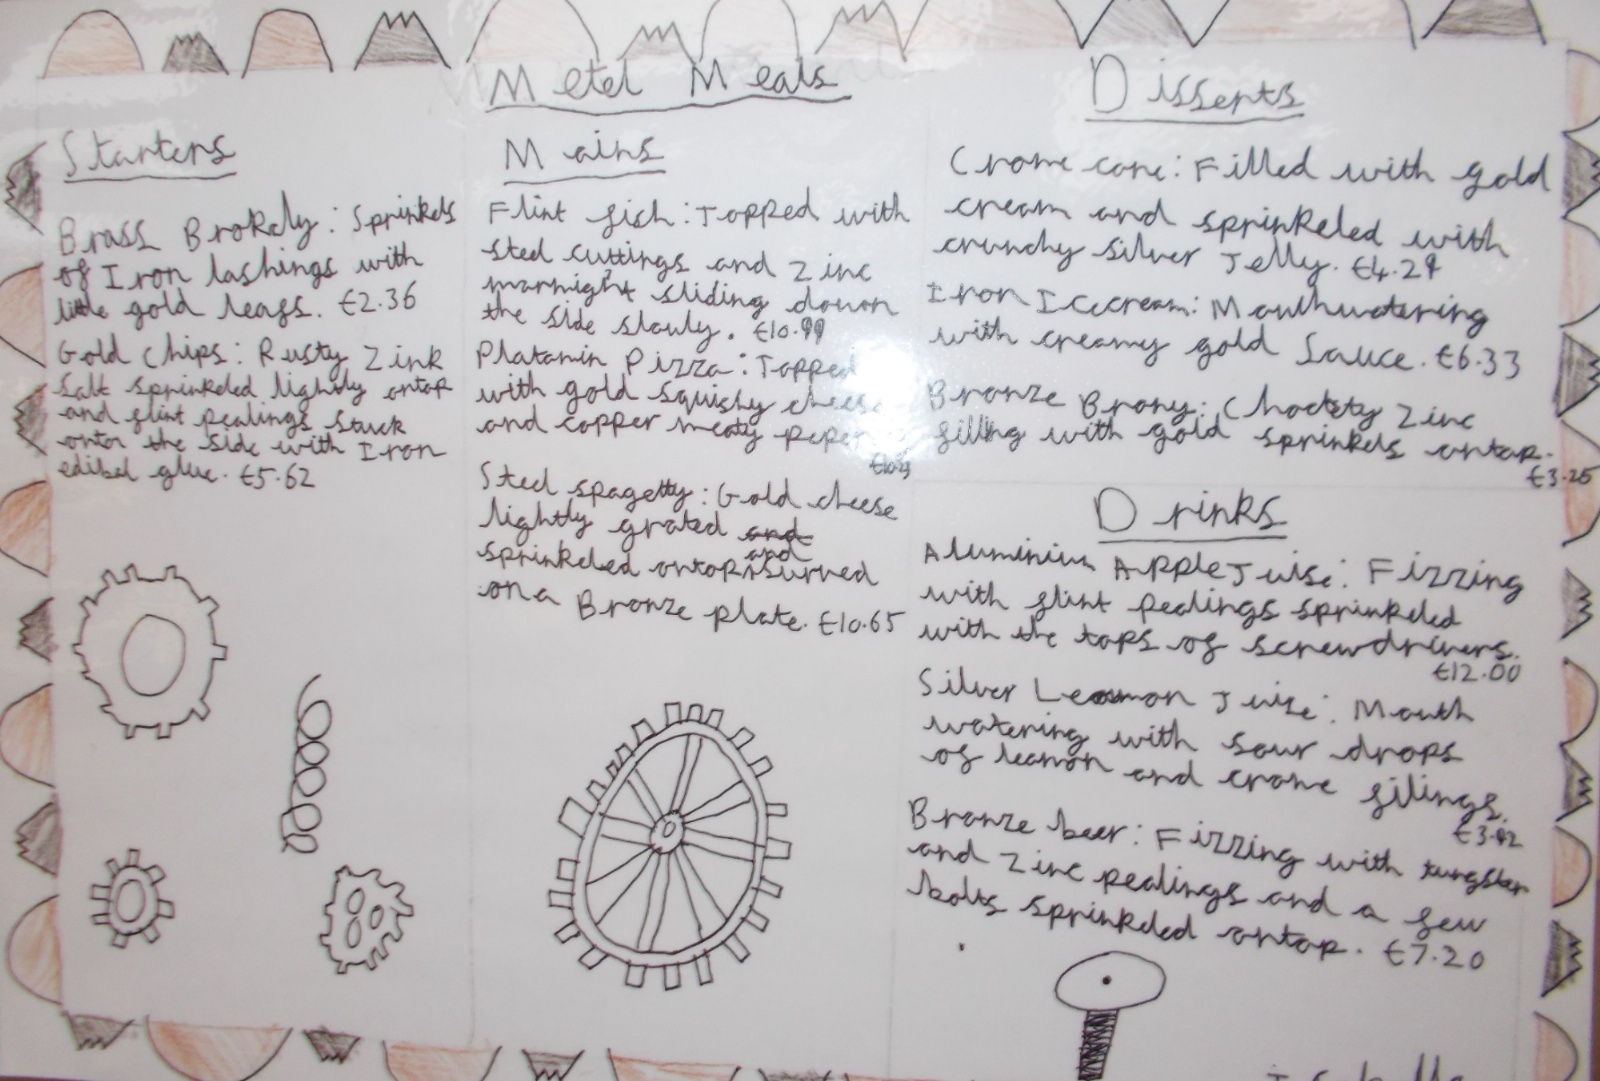 Metel Meals
Starters
Brass Brokely: Sprinkels
of Iron lashings with
little gold leafs. £2.36
Gold Chips: Rusty Zink
Salt sprinkeled lightly ontop
and flint pealings stuck
onto the side with Iron
edibel glue. £5.62
Mains
Flint fish: Topped with
steel cuttings and Zinc
the side slowly. £10.99
Platamin Pizza: Topped
with gold squishy cheese
and copper meaty
Steel spagetty: Gold cheese
lightly grated and
sprinkeled ontop and surved
on a Bronze plate. £10.65
Disserts
Crome cone: Filled with gold
cream and sprinkeled with
crunchy silver Jelly. £4.29
Iron Icecream: Mouthwatering
with creamy gold Sauce. £6.33
Bronze Browny: Zinc
filling with gold sprinkels ontop.
£3.25
Drinks
Aluminium Apple Juise: Fizzing
with flint pealings sprinkeled
with the tops of screwdrivers.
£12.00
Silver Leamon Juise: Mouth
watering with sour drops
of leamon and crome filings.
Bronze beer: Fizzing with tungsten
and Zinc pealings and a few
bolts sprinkeled ontop. £7.20